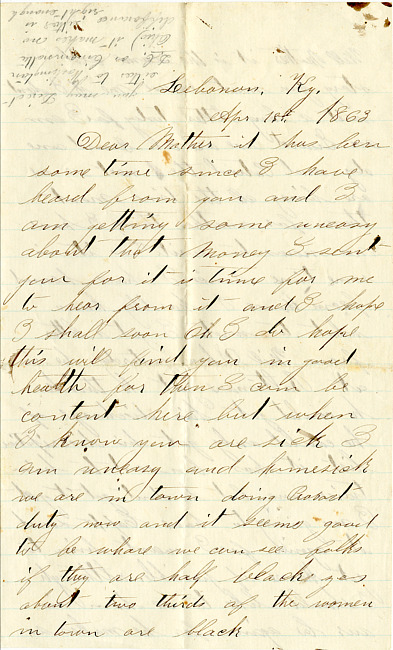 Lebanon, Ky.
Apr 18th 1863
Dear Mother it has ben
some time since I have
heard from you and I
am getting some uneasy
about that money I sent
you for it is time for me
to hear from it and I hope
I shall soon oh I do hope
this will find you in good
health for then I can be
content here but when
I know you are sick I
am uneasy and homesick
we are in town doing Provost
duty now and it seems good
to be whare we can see folks
if they are half black yes
about two thirds of the women
in town are black
you may direct
either to
or Cincinnati
it makes no
difference
right enough